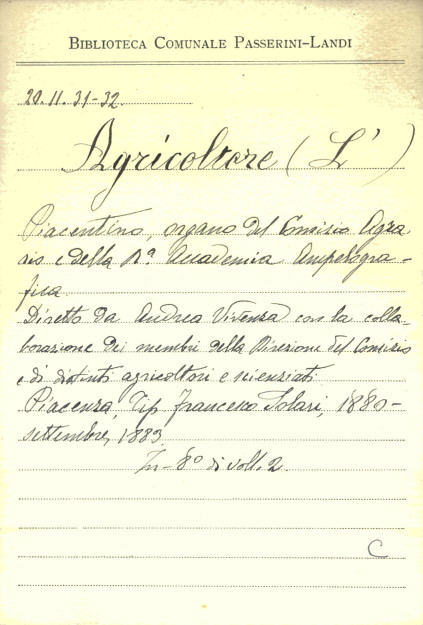 BIBLIOTECA COMUNALE PASSERINI-LANDI
20.11.31-32
Agricoltore (L')
Piacentino, organo del Comisio Agra
rio e della Rª Accademia Ampelogra-
fica
Diretto da Andrea Vivenza con la colla-
borazione dei membri della Direzione del Comisio
e di distinti agricoltori e scienziati
Piacenza, Tip. Francesco Solari, 1880-
settembre, 1883.
In-8º di voll. 2.
C